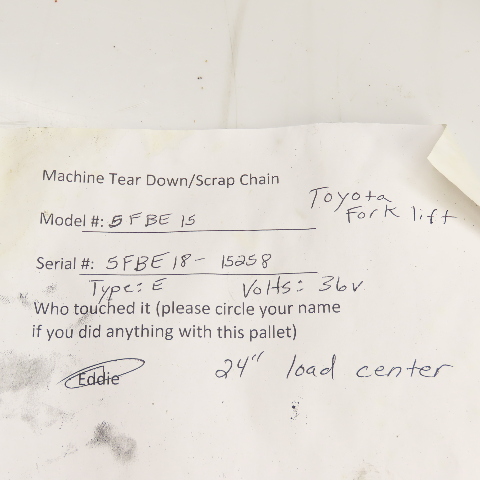 Machine Tear Down/Scrap Chain
Toyota
Fork lift
Model #: 5FBE 15
Serial #: 5FBE 18 - 15258
Type: E Volts: 36v
Who touched it (please circle your name
if you did anything with this pallet)
Eddie
24" load center